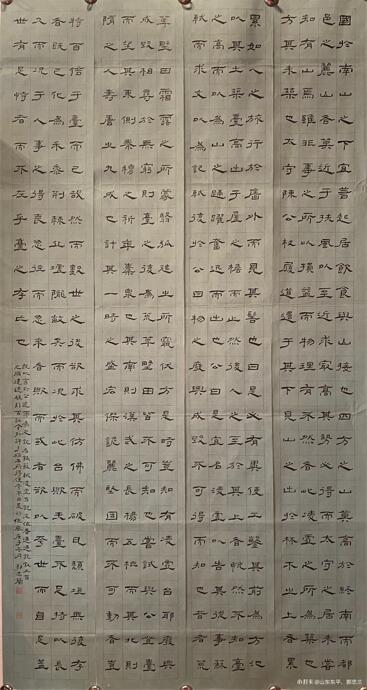 國於南山之下宜若起居飲食與山接也四方之山莫高於終南而都
邑之麗山者莫近於扶風以至近求最高其勢必得而太守之居未嘗
知有山焉雖非事之所以損益而物理有不當然者此凌虛之所為築也
方其未築也太守陳公杖履逍遙于其下見山之出於林木之上者累
累如人之旅行於牆外而見其髻也曰是必有異使工鑿其前為方池
以其土築臺高出于屋之檐而止然後人之至於其上者怳然不知臺
之高而以為山之踴躍奮迅而出也公曰是宜名凌虛以告其從事蘇
軾而求文以為記軾復於公曰物之廢興成毀不可得而知也昔者荒
草野田霜露之所蒙翳狐虺之所竄伏方是時豈知有凌虛台耶廢興
成毀相尋於無窮則臺之復為荒草野田皆不可知也嘗試與公登臺
而望其東則秦穆之祈年橐泉也其南則漢武之長楊五柞而其北則
隋之仁壽唐之九成也計其一時之盛宏傑詭麗堅固而不可動者豈
特百倍于臺而已哉然而數世之後欲求其仿佛而破瓦頹垣無復存
者既已化為禾黍荊棘丘墟隴畝矣而況於此台歟夫臺猶不足恃以長
久而況于人事之得喪忽往而忽來者歟而或者欲以夸世而自足則過矣蓋
世有足恃者而不在乎臺之存亡也